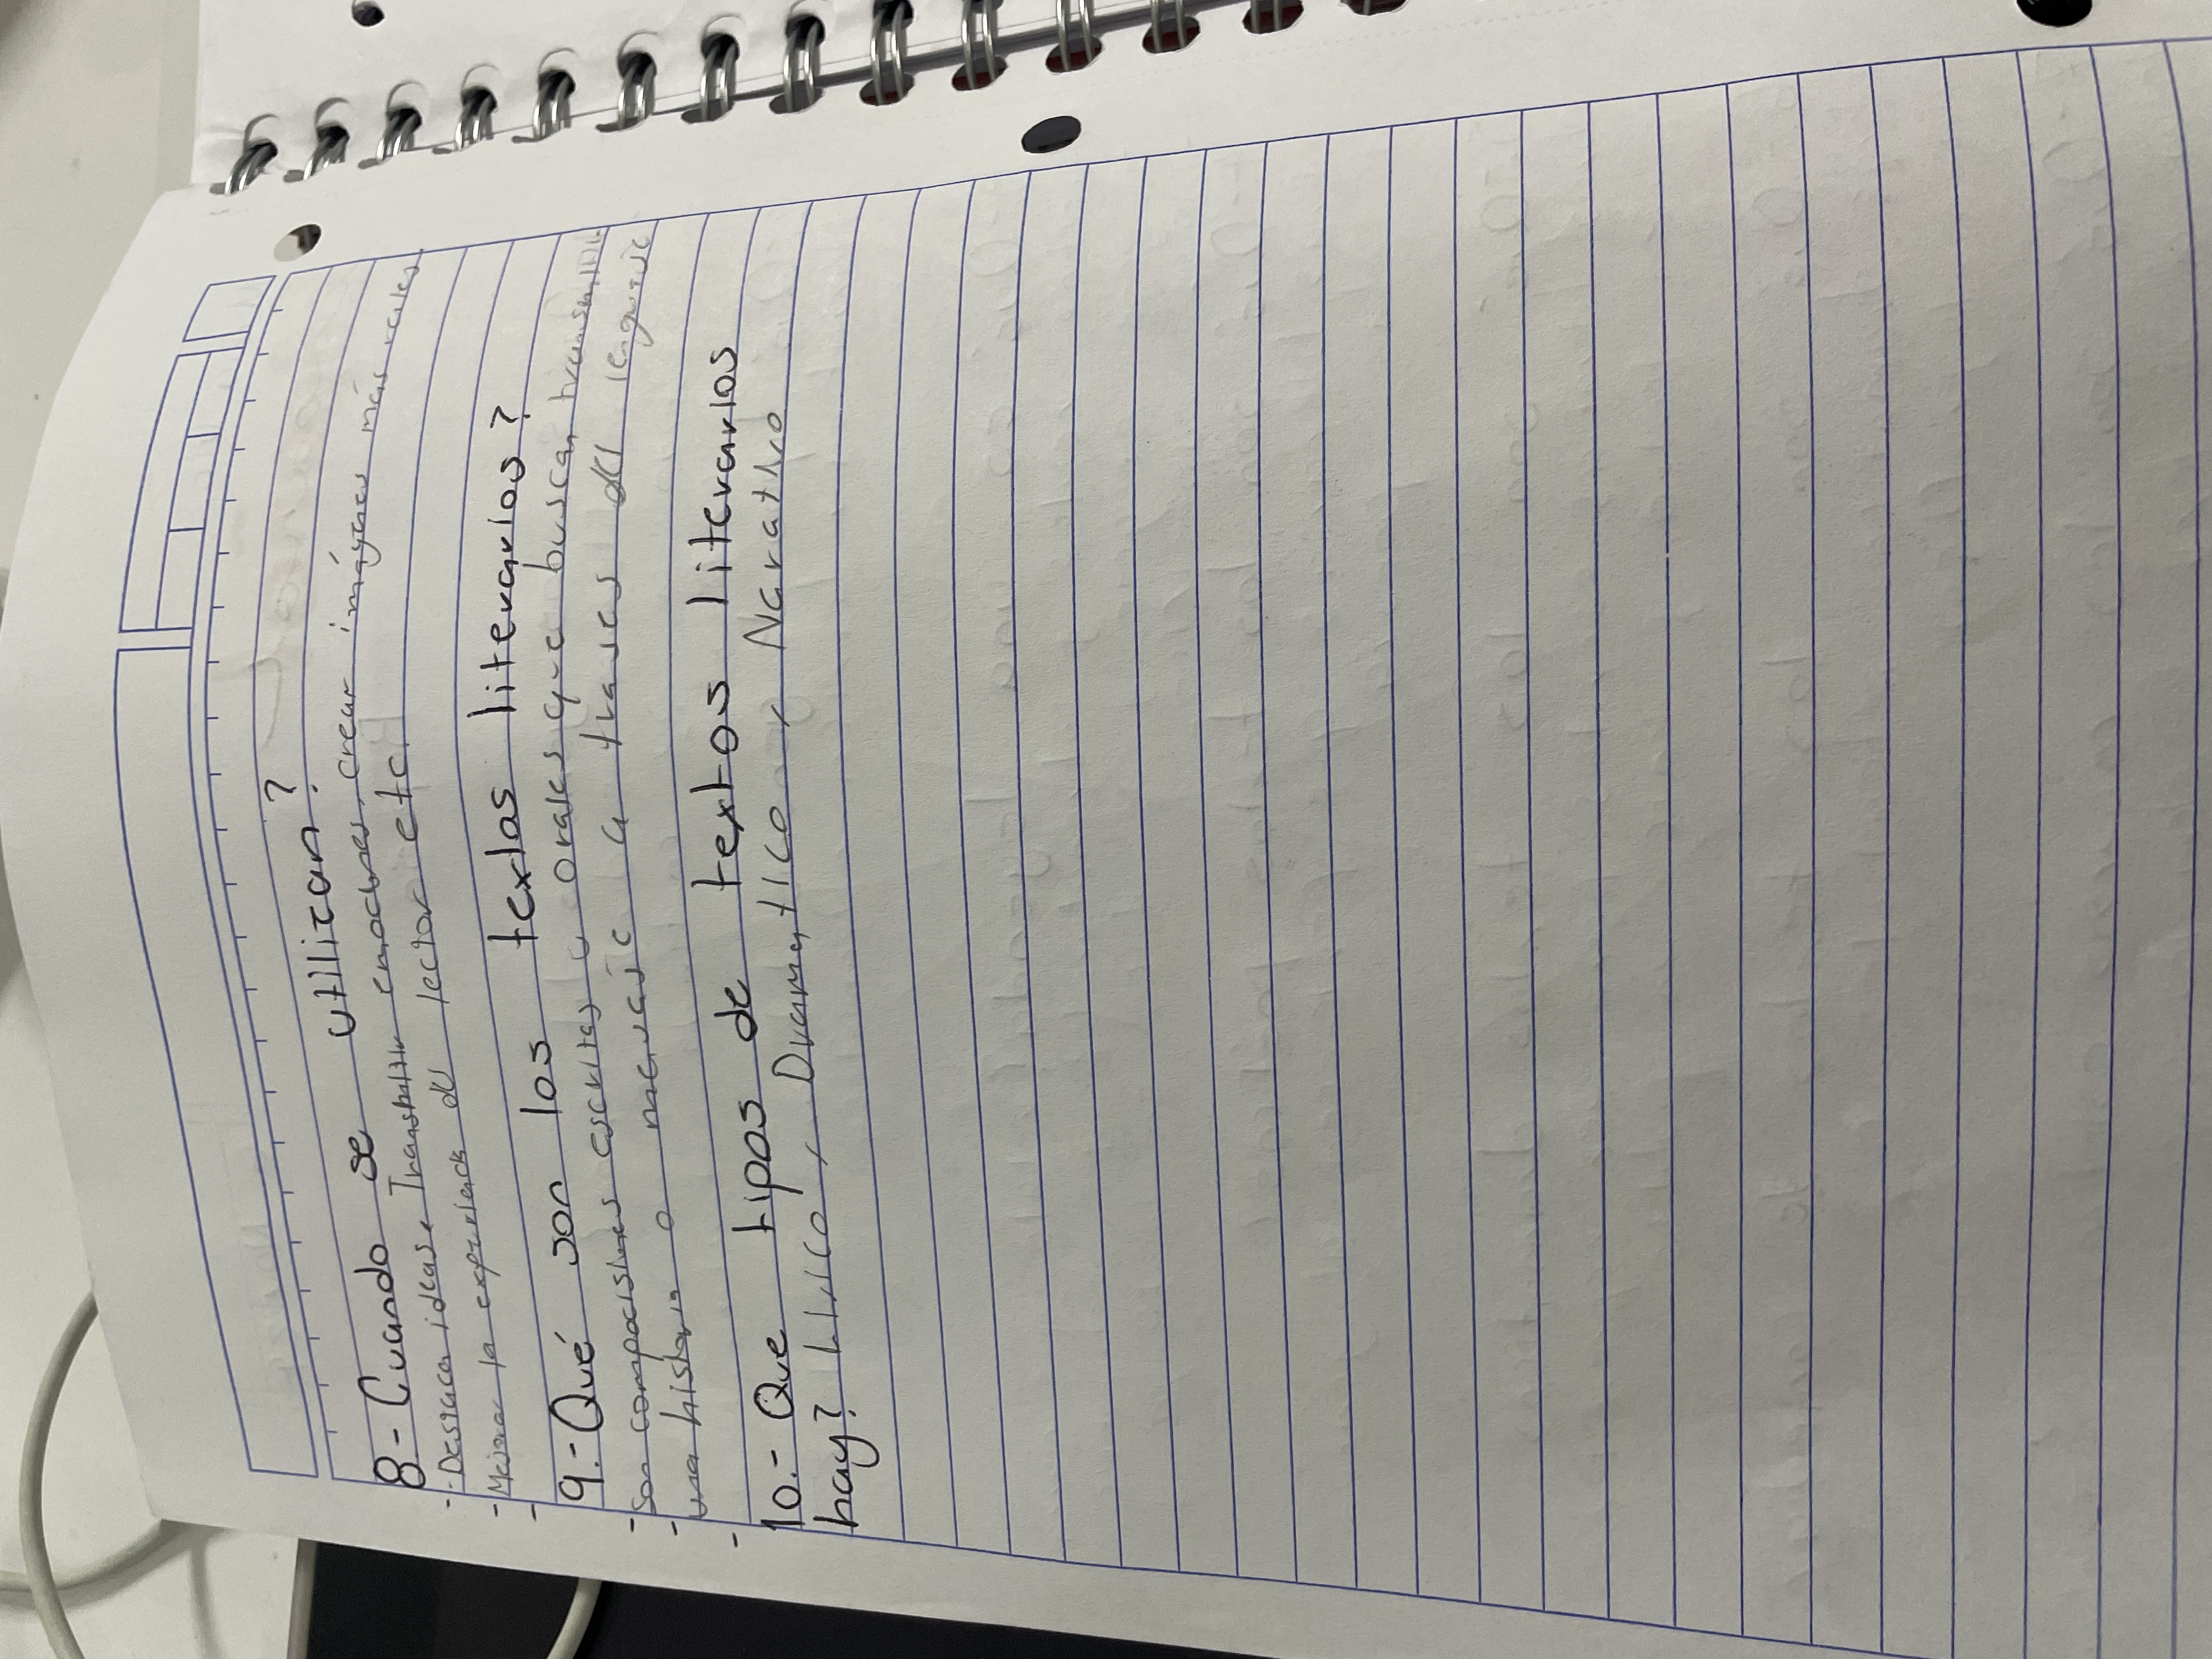 ?
8.- Cuando se utilizan?
- Destacar ideas, Transmitir emociones, crear imágenes más reales
- Mejorar la experiencia del lector etc
-
9.- Qué son los textos literarios?
- Son composiciones escritas u orales que buscan transmitir
- una historia o mensaje a traves del lenguaje
-
10.- Que tipos de textos literarios
hay? Lírico, Dramático, Narativo